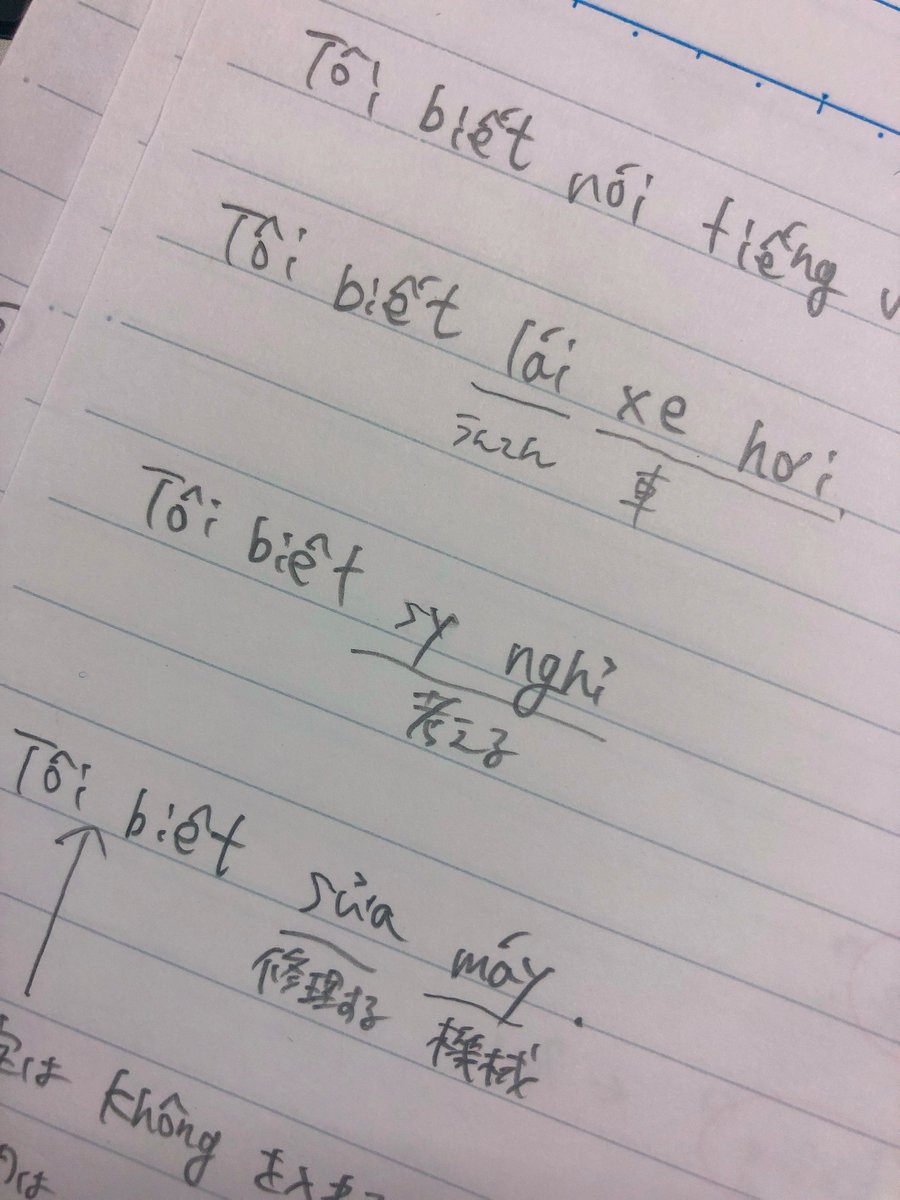 Tôi biết nói tiếng
Tôi biết lái xe hơi.
うんてん 車
Tôi biết sy nghỉ
考える
Tôi biết sửa máy.
修理する 機械
không